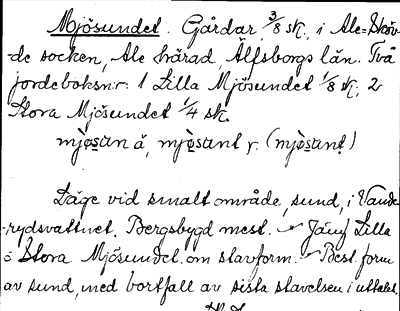 Mjösundet. Gårdar, 3/8 sk, i Ale-Sköv-
de socken, Ale härad, Älfsborgs län. Två
jordeboksnr: 1 Lilla Mjösundet 1/8 sk; 2
Stora Mjösundet 1/4 sk.
mjo̱san å, mjo̱sant y. (mjo̱sant)
Läge vid smalt område, sund, i Vande-
rydsvattnet. Bergsbygd mest. Jämf Lilla
o Stora Mjösundet om stavform. Best. form
av sund, med bortfall av sista stavelsen i uttalet.